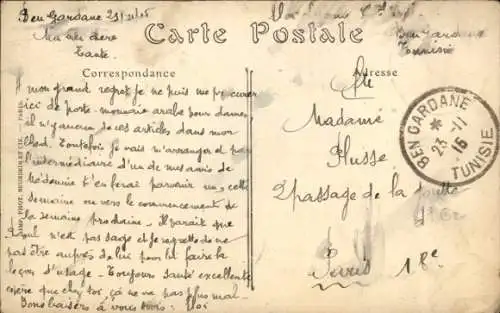 Ben Gardane 23/11/15
Carte Postale
Ben Gardane
Tunisie
Correspondance
Adresse
Ma bien chère
Tante
A mon grand regret je ne puis me procurer
ici de porte-monnaie arabe pour dames
il n'y aucun de ces articles dans mon
bled. Toutefois je vais m'arranger par
l'intermédiaire d'un de mes amis de
Médenine t'en ferai parvenir un, cette
semaine ou vers le commencement de
la semaine prochaine. Il parait que
n'est pas sage et je regrette de ne
pas être auprès de lui pour lui faire la
leçon d'usage. Toujours santé excellente
espère que chez toi, ça ne va pas plus mal.
Bons baisers à vous tous.
Madame
Plusse
2 passage de la
Paris 18e
BEN GARDANE
* 23 -11 16
TUNISIE